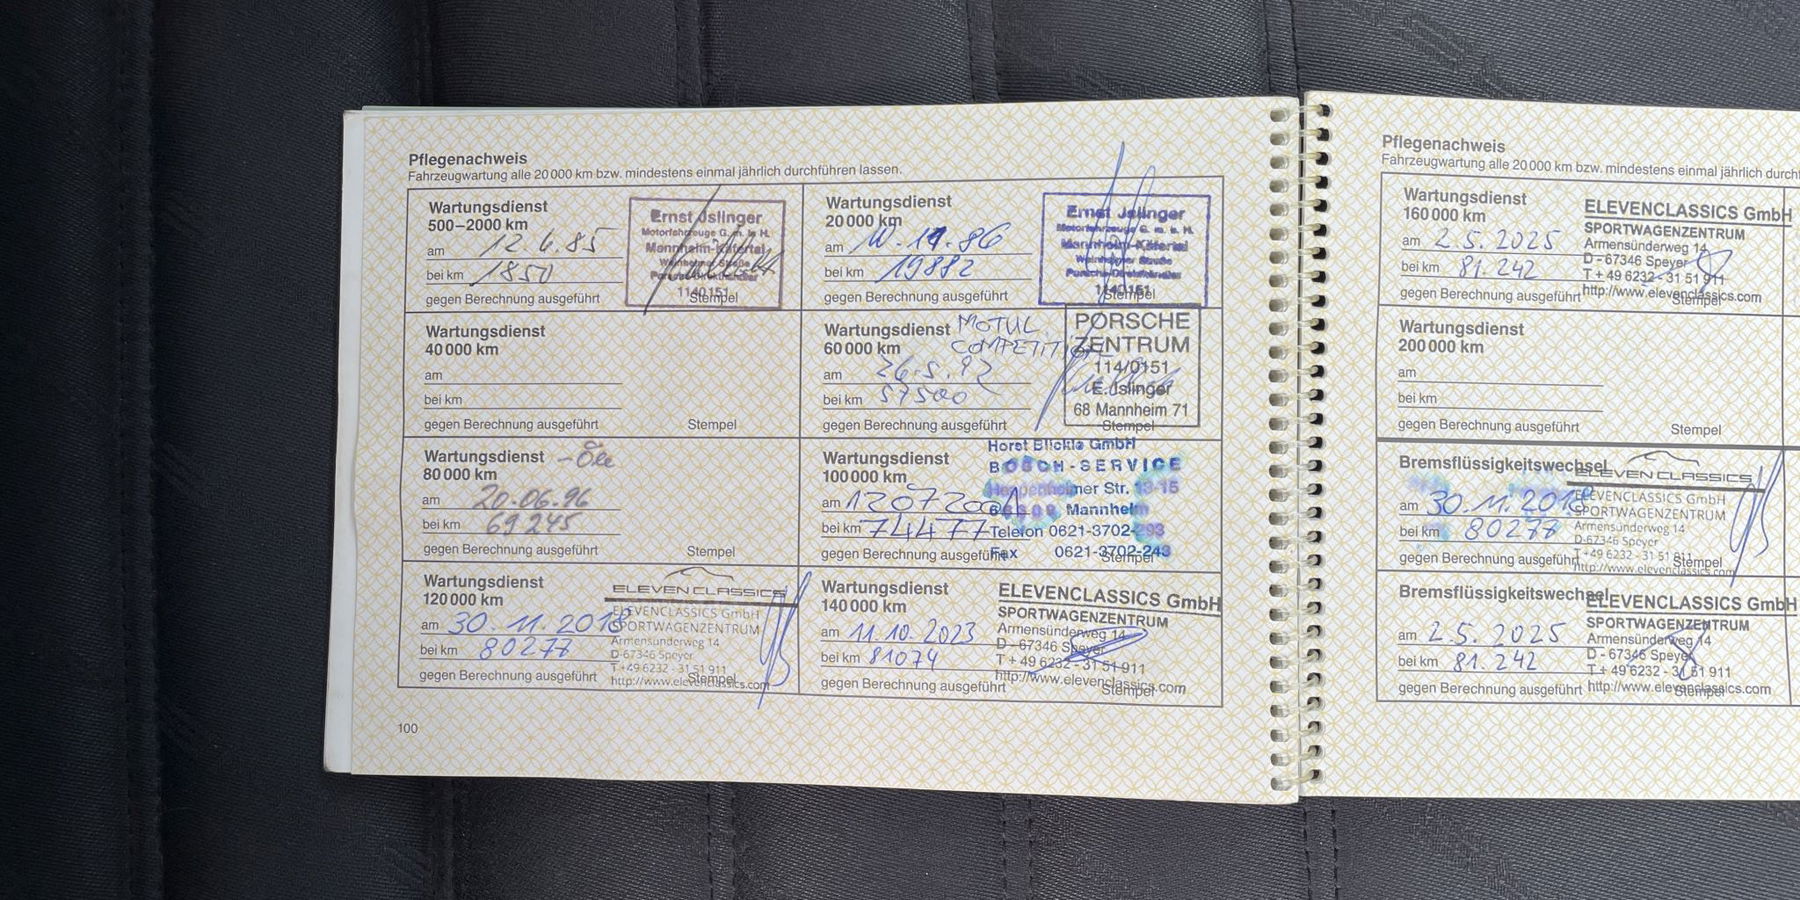 Pflegenachweis
Fahrzeugwartung alle 20 000 km bzw. mindestens einmal jährlich durchführen lassen.
Wartungsdienst
500–2000 km
am 12.6.85
bei km 1850
gegen Berechnung ausgeführt
Ernst Islinger
Motorfahrzeuge G. m. b. H.
Mannheim-Käfertal
Weinheimer Straße
1140151
Stempel
Wartungsdienst
20 000 km
am
bei km 19882
gegen Berechnung ausgeführt
Ernst Islinger
Motorfahrzeuge G. m. b. H.
Mannheim-Käfertal
Weinheimer Straße
Porsche-Direkthändler
1140151
Stempel
Wartungsdienst
40 000 km
am
bei km
gegen Berechnung ausgeführt
Stempel
Wartungsdienst
60 000 km
MOTUL
am 26.5.92
bei km 57500
gegen Berechnung ausgeführt
PORSCHE
ZENTRUM
114/0151
E.Islinger
68 Mannheim 71
Stempel
Wartungsdienst
80 000 km
am 20.06.96
bei km 69245
gegen Berechnung ausgeführt
Stempel
Wartungsdienst
100 000 km
am
bei km 74477
gegen Berechnung ausgeführt
Horst Blickle GmbH
BOSCH-SERVICE
Str. 13-15
Mannheim
Telefon 0621-3702-293
Fax 0621-3702-243
Stempel
Wartungsdienst
120 000 km
am 30.11.2018
bei km 80277
gegen Berechnung ausgeführt
ELEVENCLASSICS
ELEVENCLASSICS GmbH
SPORTWAGENZENTRUM
Armensünderweg 14
D-67346 Speyer
T +49 6232 - 31 51 911
http://www.elevenclassics.com
Stempel
Wartungsdienst
140 000 km
am 11.10.2023
bei km 81074
gegen Berechnung ausgeführt
ELEVENCLASSICS GmbH
SPORTWAGENZENTRUM
Armensünderweg 14
D - 67346 Speyer
T + 49 6232 - 31 51 911
http://www.elevenclassics.com
Stempel
100
Pflegenachweis
Fahrzeugwartung alle 20 000 km bzw. mindestens einmal jährlich durchf
Wartungsdienst
160 000 km
am 2.5.2025
bei km 81.242
gegen Berechnung ausgeführt
ELEVENCLASSICS GmbH
SPORTWAGENZENTRUM
Armensünderweg 14
D - 67346 Speyer
T + 49 6232 - 31 51 911
http://www.elevenclassics.com
Stempel
Wartungsdienst
200 000 km
am
bei km
gegen Berechnung ausgeführt
Stempel
Bremsflüssigkeitswechsel
am 30.11.2018
bei km 80277
gegen Berechnung ausgeführt
ELEVENCLASSICS
ELEVENCLASSICS GmbH
SPORTWAGENZENTRUM
Armensünderweg 14
D-67346 Speyer
T +49 6232 - 31 51 911
http://www.elevenclassics.com
Stempel
Bremsflüssigkeitswechsel
am 2.5.2025
bei km 81.242
gegen Berechnung ausgeführt
ELEVENCLASSICS GmbH
SPORTWAGENZENTRUM
Armensünderweg 14
D - 67346 Speyer
T + 49 6232 - 31 51 911
http://www.elevenclassics.com
Stempel